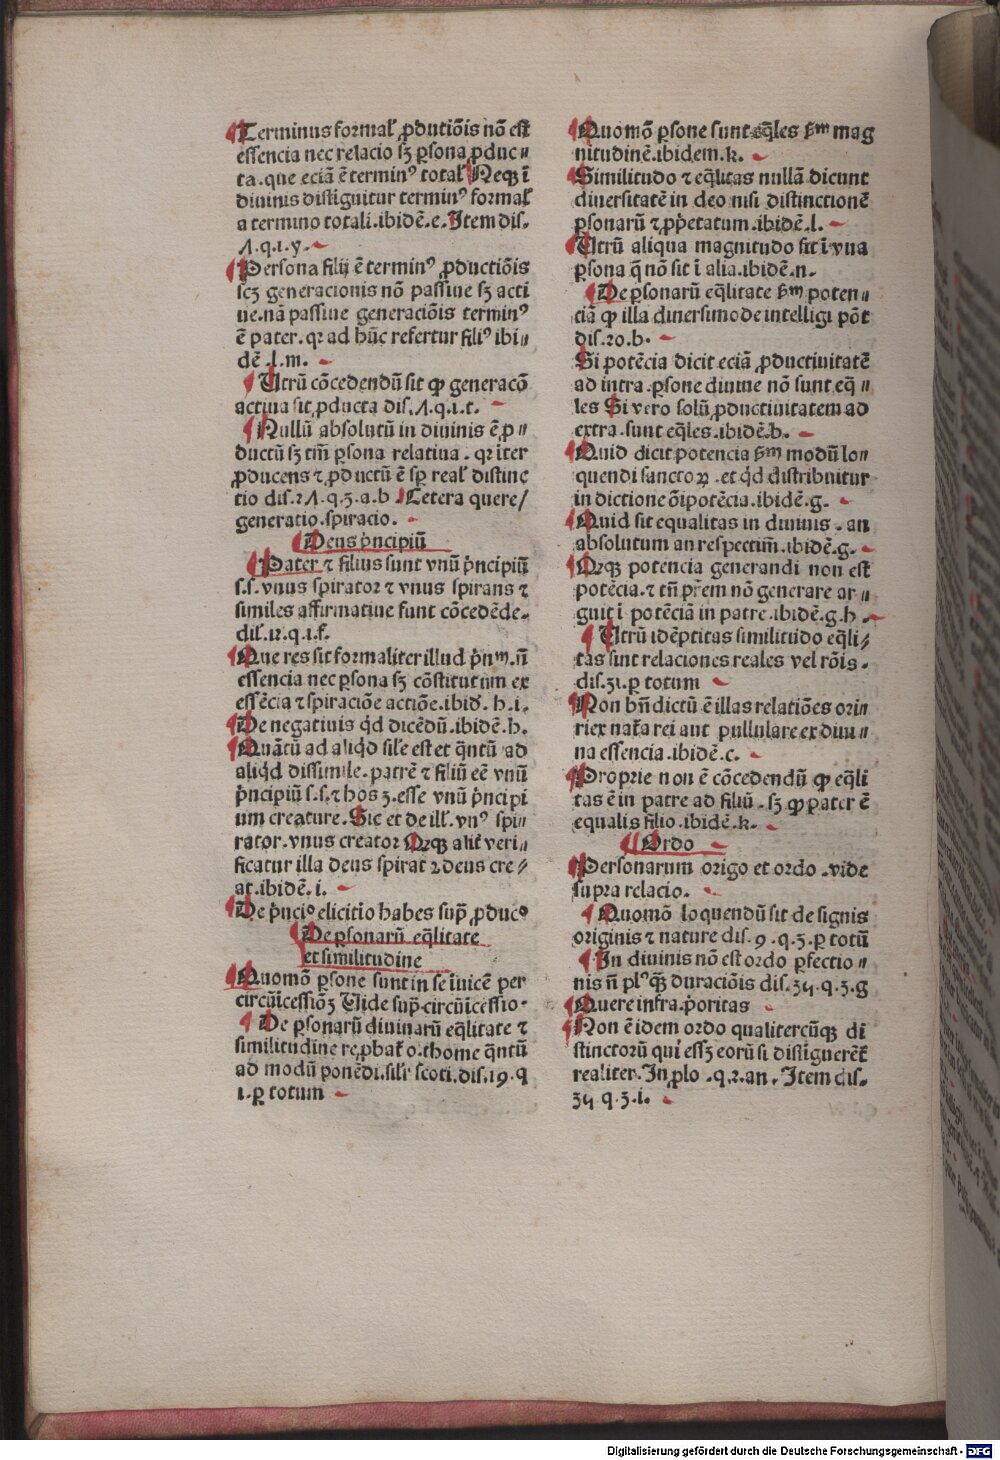 Terminus formal̛ ꝓdutiōis nō est
essencia nec relacio sꝫ ꝑsona ꝓduc⸗
ta. que eciā ē terminꝰ total̛ Neqꝫ ī
diuinis distiguitur terminꝰ formal̛
a termino totali. ibidē. e. Item dis.
1. q. i. y.
Persona filij ē terminꝰ ꝓductiōis
scꝫ generacionis nō passiue sꝫ acti
ue. nā passiue generaciōis terminꝰ
ē pater. qr ad hūc refertur filiꝰ ibi⸗
dē .l. m.
Utrū cōcedendū sit ꝙ generacō
actiua sit ꝓducta dis. 1. q. i. t.
Nullū absolutū in diuinis ē ꝓ⸗
ductū sꝫ tm̄ ꝑsona relatiua. qr īter
ꝓducens ⁊ ꝓductū ē sꝑ real̛ distinc
tio dis. 21. q. 3. a. b. Cetera quere/
generatio. spiracio.
Deus pͥncipiū
Pater ⁊ filius sunt vnū pͥncipiū
s. s. vnus spirator ⁊ vnus spirans ⁊
similes affirmatiue sunt cōcedēde.
dis̛. 12. q. 1. f.
Que res sit formaliter illud pͥnᵐ. n̄
essencia nec ꝑsona sꝫ cōstitutum ex
essēcia ⁊ spiraciōe actiōe. ibid̛. h. i.
De negatiuis qͥd dicēdū. ibidē. h.
Quātū ad aliqͥd sil̛e est et qͣntū ad
aliqͥd dissimile. patrē ⁊ filiū eē vnū
pͥncipiū s. s. ⁊ hos 3. esse vnū pͥncipi
um creature. Sic et de ill̛. vnꝰ spi⸗
rator. vnus creator Qrqꝫ alit̛ veri⸗
ficatur illa deus spirat ⁊ deus cre⸗
at. ibidē. i.
De pͥncio elicitīo habes supͣ ꝓducᵒ
De ꝑsonarū eqͣlitate
et similitudine
Quomō ꝑsone sunt in se īuicē per
circūīcessiōꝫ Vide supͣ circūīcessio.
De ꝑsonarū diuinarū eqͣlitate ⁊
similitudine reꝓbat̛ o. thome qͣntū
ad modū ponēdi. sil̛r scoti. dis. 19. q
1. ꝑ totum
Quomō ꝑsone sunt eqͣles ẜmᵐ mag
nitudinē. ibidem. k.
Similitudo ⁊ eqͣlitas nullā dicunt
diuersitatē in deo nisi distinctionē
ꝑsonarū ⁊ ꝓpͥetatum. ibidē. l.
Utrū aliqua magnitudo sit ī vna
ꝑsona q̄ nō sit ī alia. ibidē. n.
De ꝑsonarū eqͣlitate ẜmᵐ poten⸗
ciā ꝙ illa diuersimode intelligi pōt
dis. 20. b.
Si potēcia dicit eciā ꝓductiuitatē
ad intra. ꝑsone diuine nō sunt eqͣ⸗
les Si vero solū ꝓductiuitatem ad
extra. sunt eqͣles. ibidē. b.
Quid dicit potencia ẜmᵐ modū lo⸗
quendi sanctoꝝ. et qͥd distribuitur
in dictione ōipotēcia. ibidē. g.
Quid sit equalitas in diuinis. an
absolutum an respectiūᵐ. ibidē. g.
Qrqꝫ potencia generandi non est
potēcia. ⁊ tn̄ pr̄em nō generare ar⸗
guit ī potēciā in patre. ibidē. g. h.
Utrū idēptitas similitudo eqͣli⸗
tas sint relaciones reales vel rōis.
dis. 31. ꝑ totum
Non bn̄ dictū ē illas relatiōes ori⸗
ri ex nat̛a rei aut pullulare ex diui⸗
na essencia. ibidē. c.
Proprie non ē cōcedendū ꝙ eqͣli
tas ē in patre ad filiū. sꝫ ꝙ pater ē
equalis filio. ibidē. k.
Ordo
Personarum origo et ordo. vide
supra relacio.
Quomō loquendū sit de signis
originis ⁊ nature dis. 9. q. 3. ꝑ totū
In diuinis nō est ordo ꝑfectio⸗
nis n̄ plꝰqͣꝫ duraciōis dis. 35. q. 3. g
Quere infra. pͥoritas
Non ē idem ordo qualitercūqꝫ di
stinctorū qui essꝫ eorū si distiguerēt̛
realiter. In ꝓlo. q. 2. an. Item dis.
35 q. 3. i.
Digitalisierung gefördert durch die Deutsche Forschungsgemeinschaft - DFG